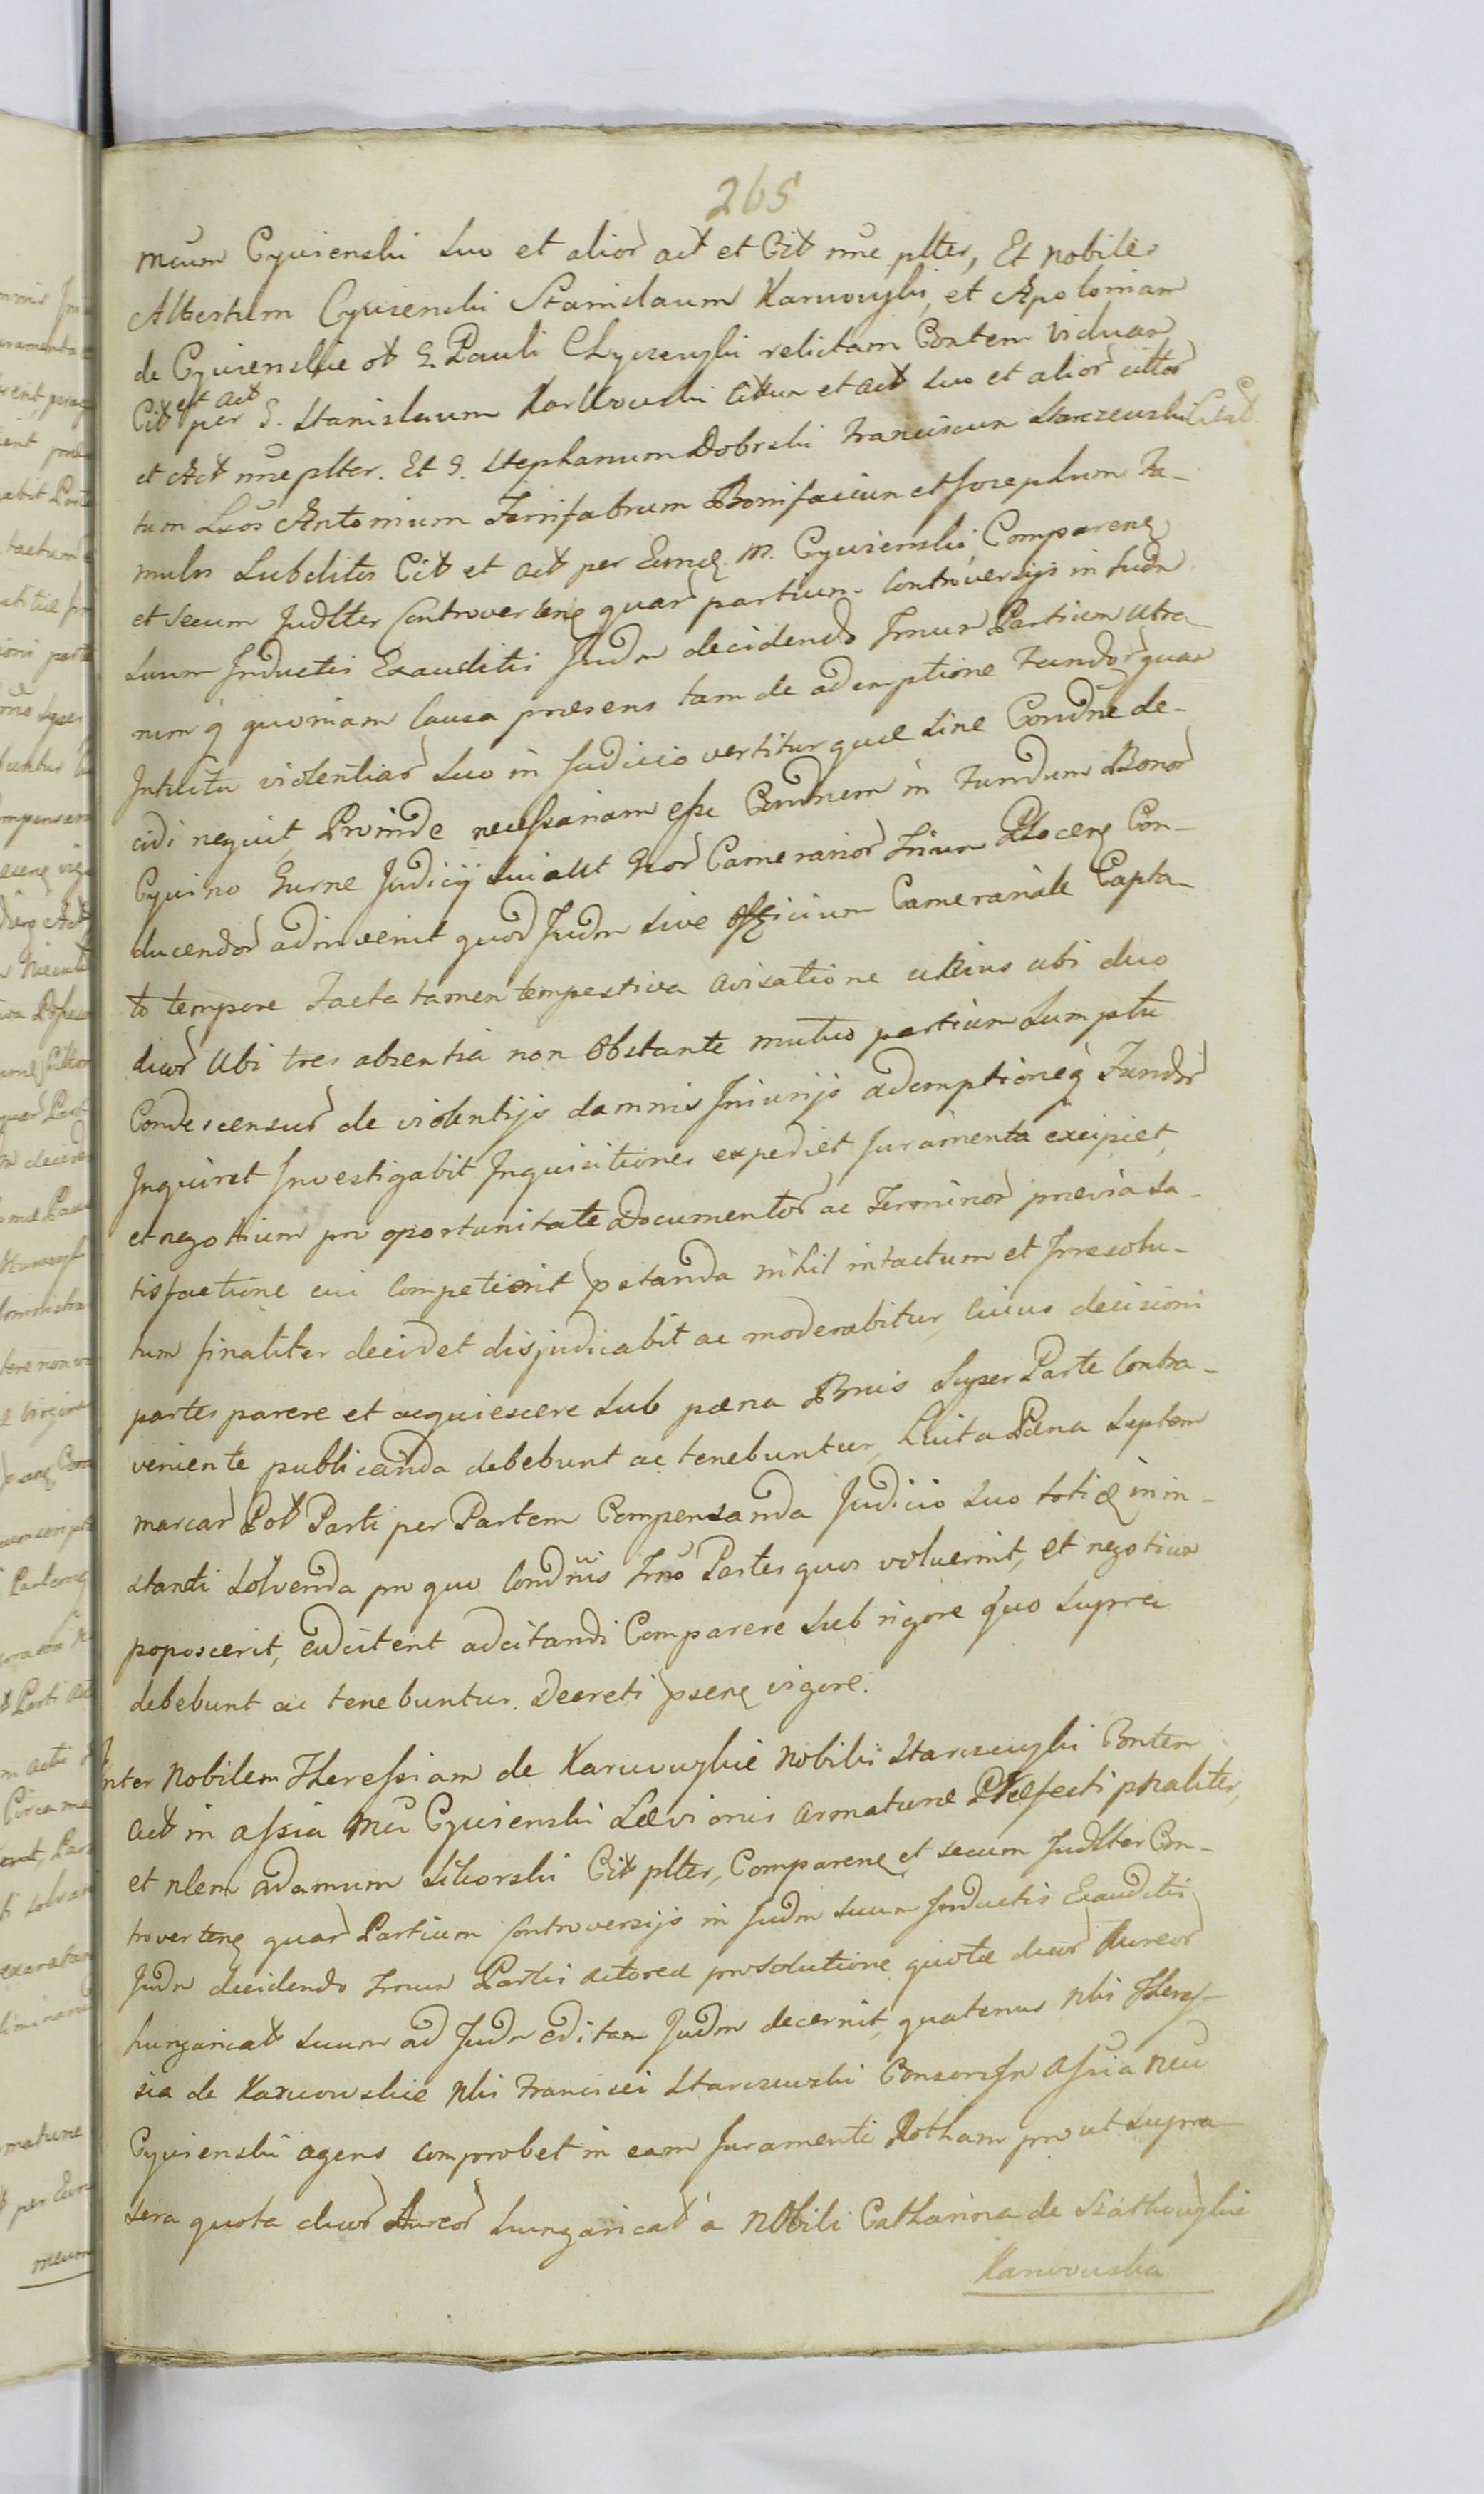 265
mcum Cywienski suo et alior act et Cit nne plter, Et nobiles
Albertum Cywienski Stanislaum Karwowski, et Apoloniam
de Cywienskie ol G Pauli Chyczewski relictam Contem viduam
et act
Cit per G. Stanislaum Karwowski citum et act suo et alior cittor
et Act nneplter. Et G. Stephanum Dobrski Franciscum Starczewski Citat
tum Lbos Antonium Ferrifabrum Bonifacium et Josephum Fa-
mulos Subditos Cit et act per Eund M. Cywienski Comparen
et secum Judlter Controverten quar partium Controversijs in Judm
suum Inductis Exauditis Judm decidendo Trnum Partium utra-
rumq quoniam Causa præsens tam de ademptione Fundor quam
Intuitu violentiar suo in Judicio vertitur quæ sine Condne de-
cidi nequit, Proinde necessariam esse Condnem in Fundum Bonor
Cywino Gurne Judicij sui aut Gror Camerarior Trium Plocen Con-
ducendor adinvenit quod Judm sive Officium Camerariale Capta-
to tempore Facta tamen tempestiva avisatione ulteius ubi duo
duor Ubi tres absentia non obstante mutuo partium sumptu
Condescensur de violentijs damnis Iniurijs ademptioneq Fundor
Inquiret Investigabit Inquisitiones expediet Juramenta excipiet,
et negotium pro oportunitate Documentor ac Terminor prævia sa-
tisfactione cui Competierit pstanda nihil intactum et Irresolu-
tum finaliter decidet disjudicabit ac moderabitur, cuius decisioni
partes parere et acquiescere sub pæna Bnis super Parte Contra-
veniente publicanda debebunt ac tenebuntur, Luita Pæna septem
marcar Pol Parti per Partem Compensanda Judicio suo totid in in-
stanti solvenda pro quo Condnis Trno Partes quos voluerint, et negotium
poposcerit, adcitent adcitandi Comparere sub rigore quo supra
debebunt ac tenebuntur. Decreti psen vigore.
Inter Nobilem Theressiam de Karwowskie Nobilis Starczewski Contem
act in assia Mci Cywienski Levioris armaturæ Præfecti pnaliter,
et nlem Adamum Sikorski Cit plter, Comparen et secum Judlter Con-
troverten quar Partium Controversijs in Judm suum Inductis Exauditis
Judm decidendo Trnum Partis actoreæ pro solutione quotæ duor Aureor
hungarical suum ad Judm editam Judm decernit, quatenus Nlis Theres-
sia de Karwowskie Nlis Francisci Starczewski Consors In assia Mci
Cywienski agens comprobet in eam Juramenti Rotham pro ut supra
sera quota duor Aureor hungarical a Nobili Catharina de Szathowskie
Karwowska